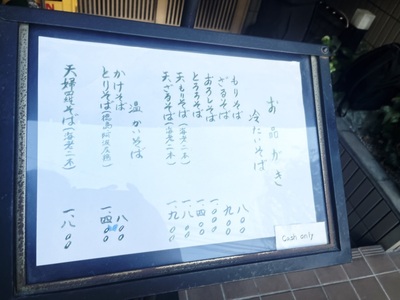 お品がき
冷たいそば
もりそば 八〇〇
ざるそば 九〇〇
おろしそば 一、〇〇〇
とろろそば 一、四〇〇
天もりそば(海老二本) 一、八〇〇
天ざるそば(海老二本) 一、九〇〇
温かいそば
かけそば 八〇〇
とりそば(徳島阿波尾鶏) 一、四〇〇
天婦羅そば(海老二本) 一、八〇〇
Cash only